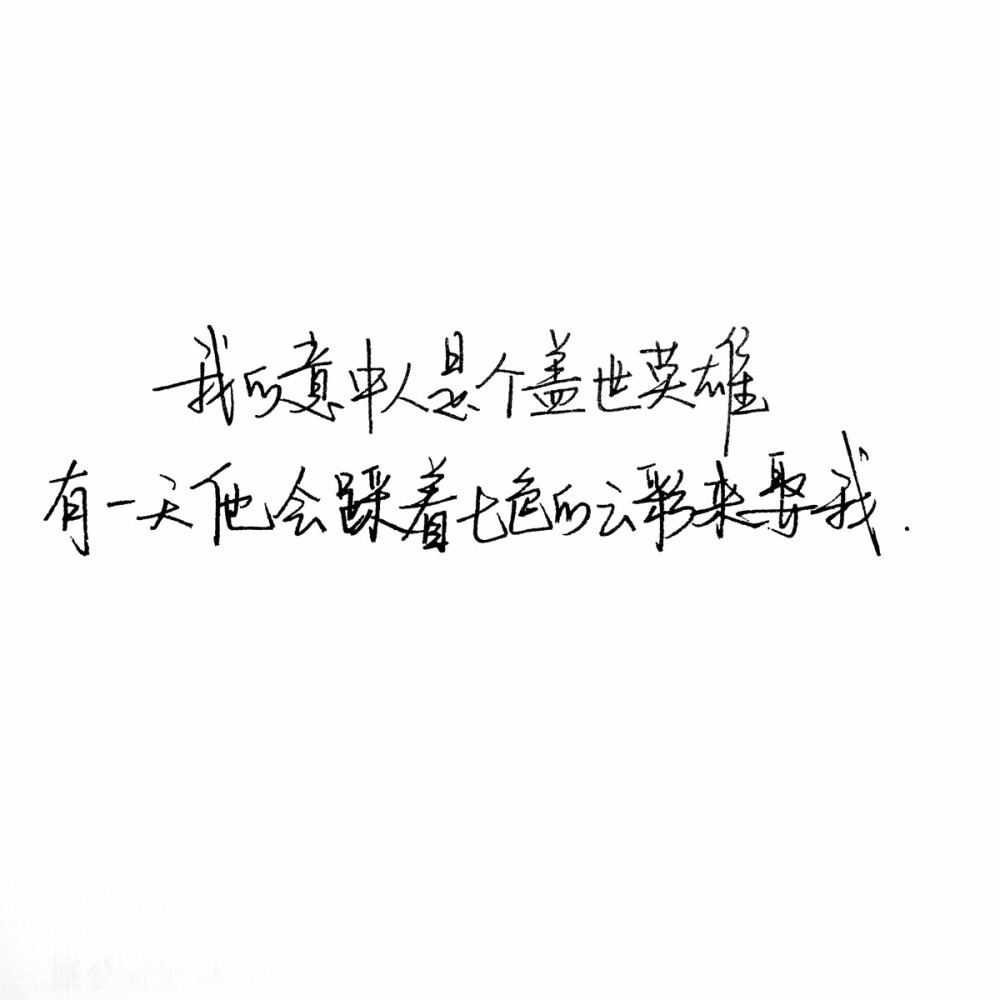 我的意中人是个盖世英雄
有一天他会踩着七色的云彩来娶我.